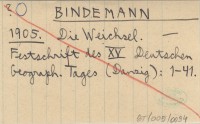 BINDEMANN
1905. Die Weichsel. —
Festschrift des XV Deutschen
Geograph. Tages (Danzig): 1-41.